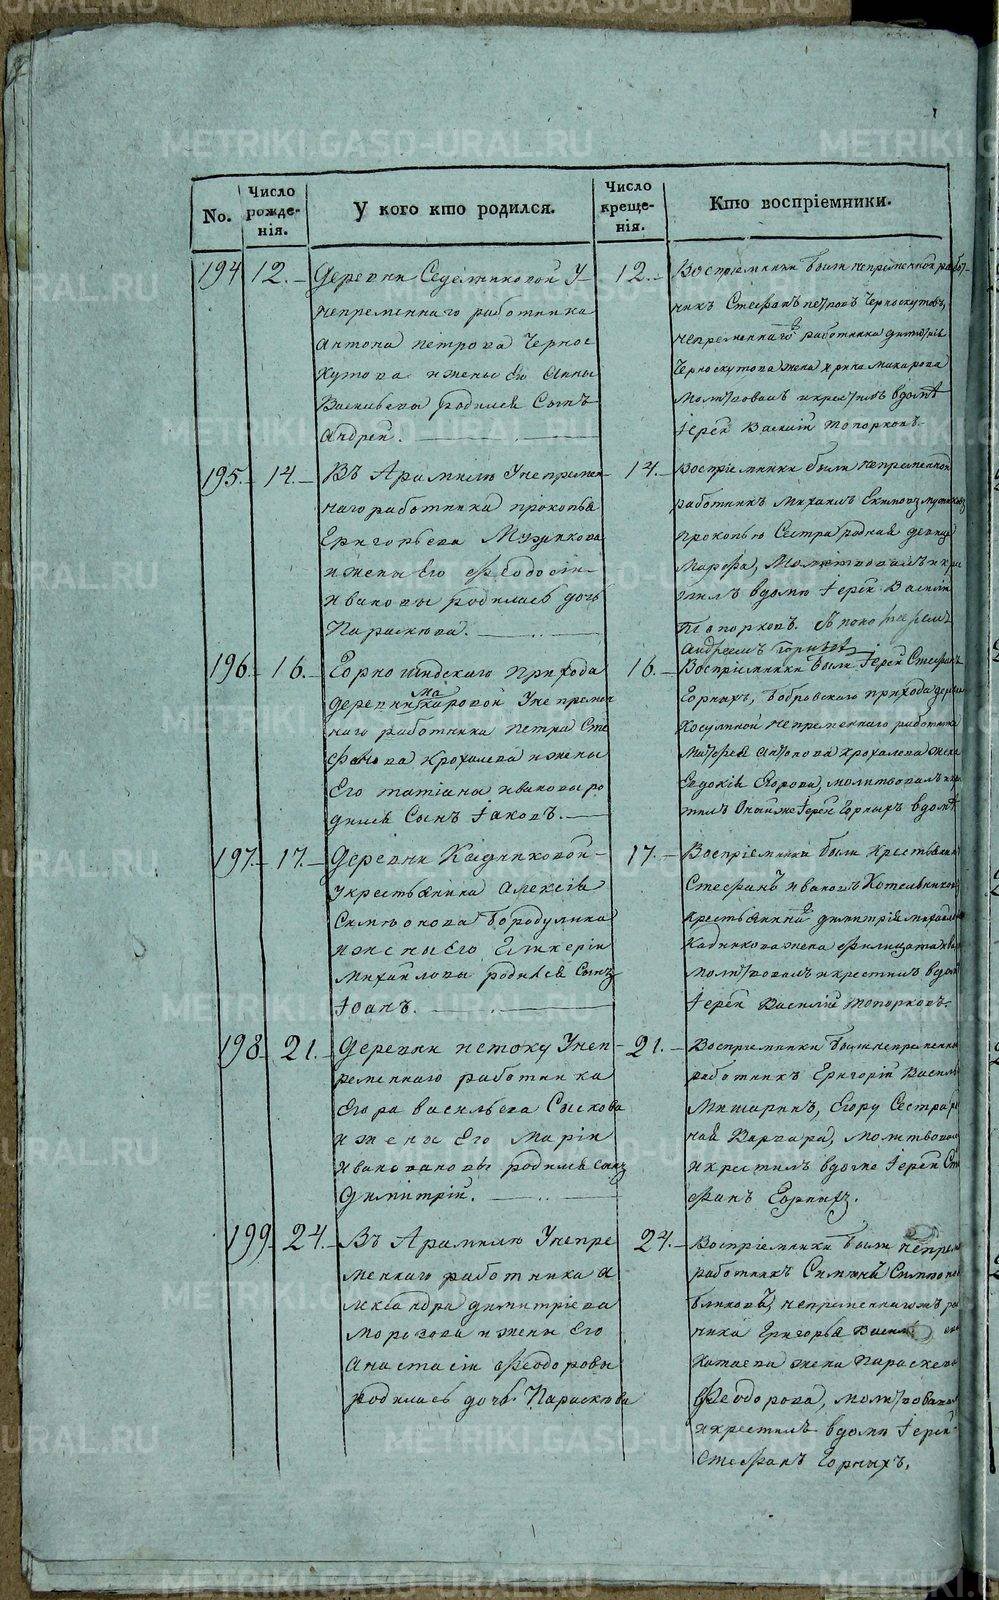 METRIKI.GASO-URAL.RU
No.
Число рожде-нія.
У кого кто родился.
Число креще-нія.
Кто воспріемники.
194
12.
Деревни Седельниковой у
непременнаго работника
Антона Петрова Чернос
кутова и жены Его Анны
Васильевы родился Сынъ
Андрей.
12.
Воспріемники были непременной работ-
никъ Стефанъ Петровъ Черноскутовъ,
непременнаго работника Димитрія
Черноскутова жена Ирина Макарова
молитвовалъ и крестилъ в домѣ
Іерей Василій Топорковъ.
195.
14.
Въ Арамилѣ У непремен
наго работника Прокопья
Григорьева Мезинкова
и жены Его Феодосіи
Ивановы родилась дочь
Параскева.
14.
Воспріемники были непременной
работникъ Михаилъ Екимовъ
Прокопью Сестра родная девица
Марфа, Молитвовалъ и кре
тилъ в домѣ Іерей Василій
Топорковъ. С пономарем
Андреемъ
196
16.
Горнощитскаго прихода
деревни Макаровой У непремен
наго работника Петра Сте
фанова Крохалева и жены
Его Татіаны Ивановы ро
дился Сынъ Іаковъ.
16.
Воспріемники были Іерей Стефанъ
Горныхъ, Бобровскаго прихода дерев
Косулиной непременнаго работника
Матфея Антонова Крохалева жена
Евдокія Егорова, молитвовалъ и кре
тилъ Оный же Іерей Горныхъ в домѣ
197.
17.
Деревни Кадниковой
у крестьянина Алексія
Симеонова Бородулина
и жены Его Гликеріи
Михайловы родился Сынъ
Іоанъ.
17.
Воспріемники были крестьянинъ
Стефанъ Ивановъ Котельников
крестьянина Димитрія Михайлова
Кадникова жена Филицата
молитвовалъ и крестилъ в домѣ
Іерей Василій Топорковъ.
198
21.
Деревни Истоку У неп
ременнаго работника
Егора Васильева Сыскова
и жены Его Маріи
Ивановы родился сынъ
Димитрій.
21.
Воспріемники были непременной
работникъ Григорій Васил
Мишаринъ, Егору Сестра ро
ная Варвара, молитвовал
и крестилъ в доме Іерей Сте
фанъ Горныхъ.
199
24.
Въ Арамилѣ У непре
меннаго работника А
лександра Димитріева
Морозова и жены Его
Анастасіи Феодоровы
родилась дочь Параскева
24.
Воспріемники были непрем
работникъ Симеонъ Симеонов
Бликовъ, непременнагожъ ра
ника Григорья Васил
Катаева жена Параскева
Феодорова, молитвовал
и крестилъ в домѣ Іерей
Стефанъ Горныхъ.